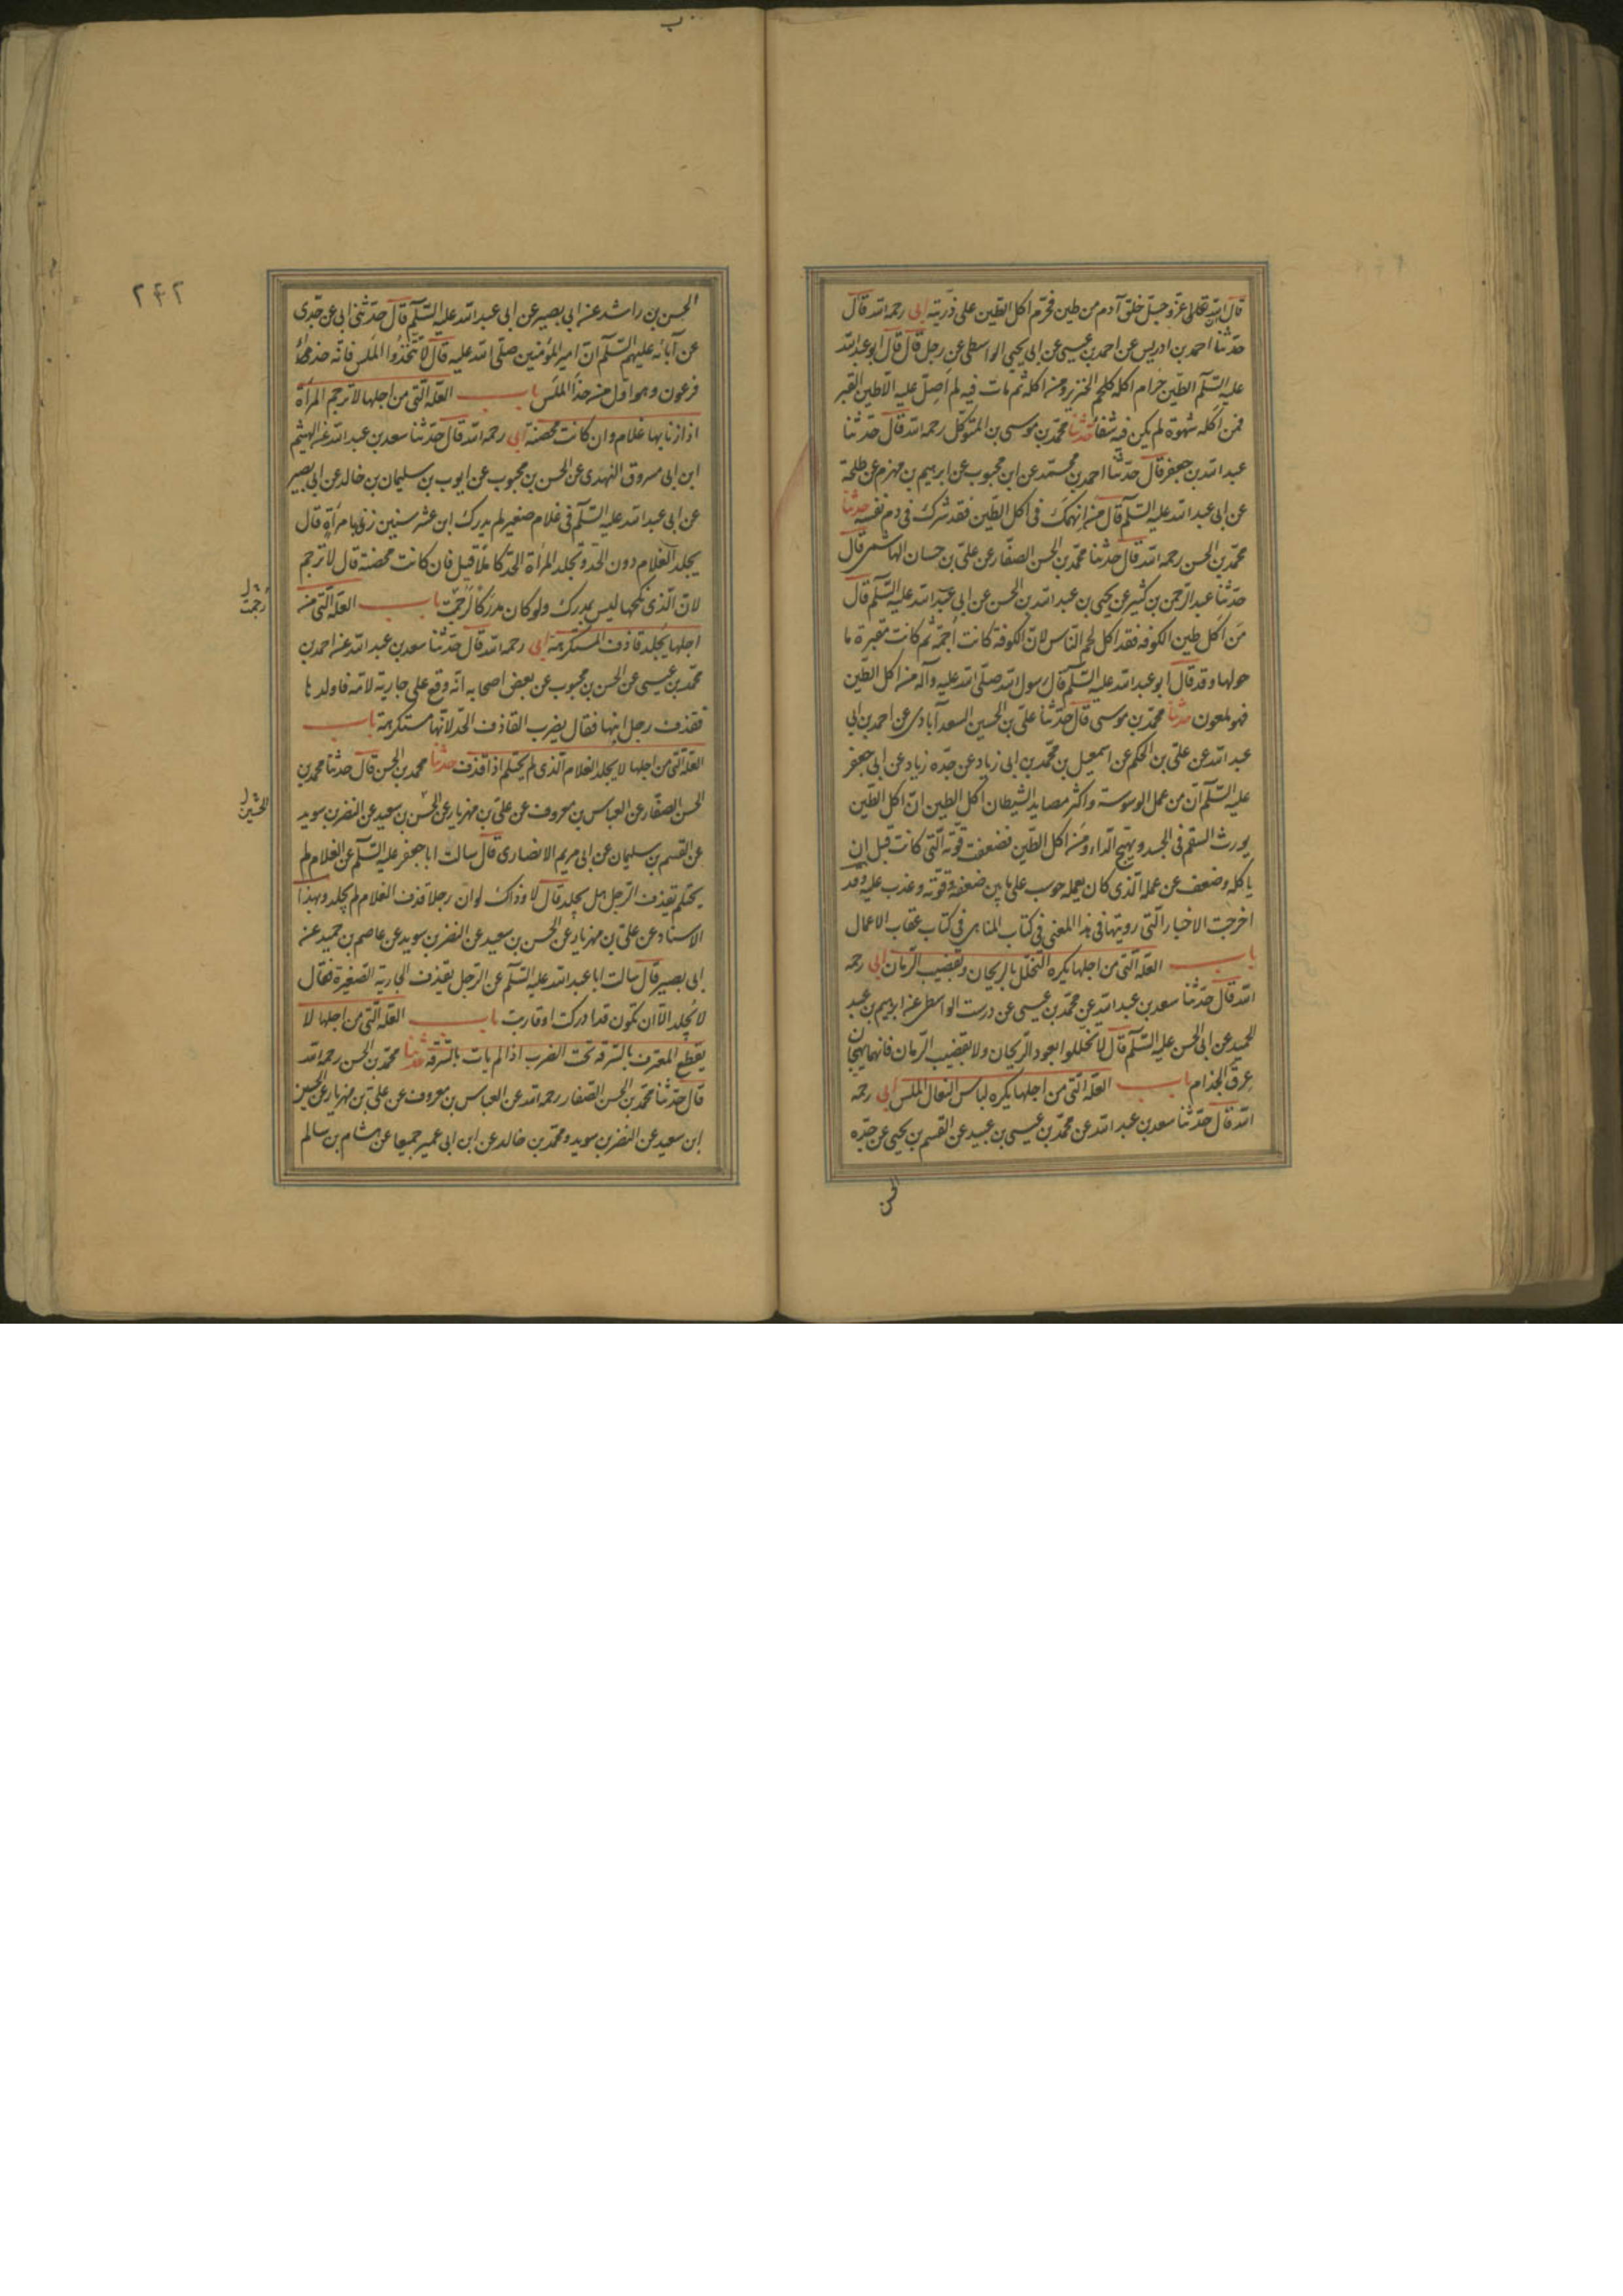 قال ان الله تعالى عز وجل خلق آدم من طين فحرم اكل الطين على ذريته ابى رحمه الله قال
حدثنا احمد بن ادريس عن احمد بن عيسى عن ابى يحيى الواسطى عن رجل قال قال ابو عبد الله
عليه السلم الطين حرام اكله كلحم الخنزير ومن اكله ثم مات فيه لم اصل عليه الا طين القبر
فمن اكله شهوة لم يكن فيه شفا حدثنا محمد بن موسى بن المتوكل رحمه الله قال حدثنا
عبد الله بن جعفر قال حدثنا احمد بن محمد عن ابن محبوب عن ابرهيم بن مهزم عن طلحة
عن ابى عبد الله عليه السلم قال من انهمك فى اكل الطين فقد شرك فى دم نفسه حدثنا
محمد بن الحسن رحمه الله قال حدثنا محمد بن الحسن الصفار عن على بن حسان الهاشمى قال
حدثنا عبد الرحمن بن كثير عن يحيى بن عبد الله بن الحسن عن ابى عبد الله عليه السلم قال
من اكل طين الكوفه فقد اكل لحم الناس لان الكوفة كانت اجمة ثم كانت مقبرة ما
حولها وقد قال ابو عبد الله عليه السلم قال رسول الله صلى الله عليه وآله من اكل الطين
فهو ملعون حدثنا محمد بن موسى قال حدثنا على بن الحسين السعد آبادى عن احمد بن ابى
عبد الله عن على بن الحكم عن اسمعيل بن محمد بن ابى زياد عن جده زياد عن ابى جعفر
عليه السلم ان من عمل الوسوسة واكثر مصايد الشيطان اكل الطين ان اكل الطين
يورث السقم فى الجسد ويهيج الداء ومن اكل الطين فضعفت قوته التى كانت قبل ان
ياكله وضعف عن عمله الذى كان يعمله حوسب على ما بين ضعفه وقوته وعذب عليه وقد
اخرجت الاخبار التى رويتها فى هذا المعنى فى كتاب المناهى فى كتاب عقاب الاعمال
باب العلة التى من اجلها يكره التخلل بالريحان وبقضيب الرمان ابى رحمه
الله قال حدثنا سعد بن عبد الله عن محمد بن عيسى عن درست الواسطى عن ابرهيم بن عبد
الحميد عن ابى الحسن عليه السلم قال لا تخللوا بعود الريحان ولا بقضيب الرمان فانهما يهيجان
عرق الجذام باب العلة التى من اجلها يكره لباس النعال الملس ابى رحمه
الله قال حدثنا سعد بن عبد الله عن محمد بن عيسى بن عبيد عن القسم بن يحيى عن جده
الحسن
٢٤٢
الحسن بن راشد عن ابى بصير عن ابى عبد الله عليه السلم قال حدثنى ابى عن جدى
عن آبائه عليهم السلم ان امير المؤمنين صلى الله عليه قال لا تتخذوا الملس فانه حذاء
فرعون وهو اول من حذا الملس باب العلة التى من اجلها لا ترجم المرأة
اذا زنا بها غلام وان كانت محصنة ابى رحمه الله قال حدثنا سعد بن عبد الله عن الهيثم
ابن ابى مسروق النهدى عن الحسن بن محبوب عن ايوب بن سليمان بن خالد عن ابى بصير
عن ابى عبد الله عليه السلم فى غلام صغير لم يدرك ابن عشر سنين زنى بامرأة قال
يجلد الغلام دون الحد وتجلد المرأة الحد كاملا قيل فان كانت محصنة قال لا ترجم
لان الذى نكحها ليس بمدرك ولو كان مدركا لرجمت باب العلة التى من
رجمت ل
اجلها يجلد قاذف المستكرهة ابى رحمه الله قال حدثنا سعد بن عبد الله عن احمد بن
محمد بن عيسى عن الحسن بن محبوب عن بعض اصحابه انه وقع على جارية لامه فاولدها
فقذف رجل ابنها فقال يضرب القاذف الحد لانها مستكرهة باب
العلة التى من اجلها لا يجلد الغلام الذى لم يحتلم اذا قذف حدثنا محمد بن الحسن قال حدثنا محمد بن
الحسن الصفار عن العباس بن معروف عن على بن مهزيار عن الحسن بن سعيد عن النضر بن سويد
الحسين ل
عن القسم بن سليمان عن ابى مريم الانصارى قال سالت ابا جعفر عليه السلم عن الغلام لم
يحتلم يقذف الرجل هل يجلد قال لا وذاك لو ان رجلا قذف الغلام لم يجلد وبهذا
الاسناد عن على بن مهزيار عن الحسن بن سعيد عن النضر بن سويد عن عاصم بن حميد عن
ابى بصير قال سالت ابا عبد الله عليه السلم عن الرجل يقذف الجارية الصغيرة فقال
لا يجلد الا ان تكون قد ادركت او قاربت باب العلة التى من اجلها لا
يقطع المعترف بالسرقة تحت الضرب اذا لم يات بالسرقة حدثنا محمد بن الحسن رحمه الله
قال حدثنا محمد بن الحسن الصفار رحمه الله عن العباس بن معروف عن على بن مهزيار عن الحسين
ابن سعيد عن النضر بن سويد ومحمد بن خالد عن ابن ابى عمير جميعا عن هشام بن سالم